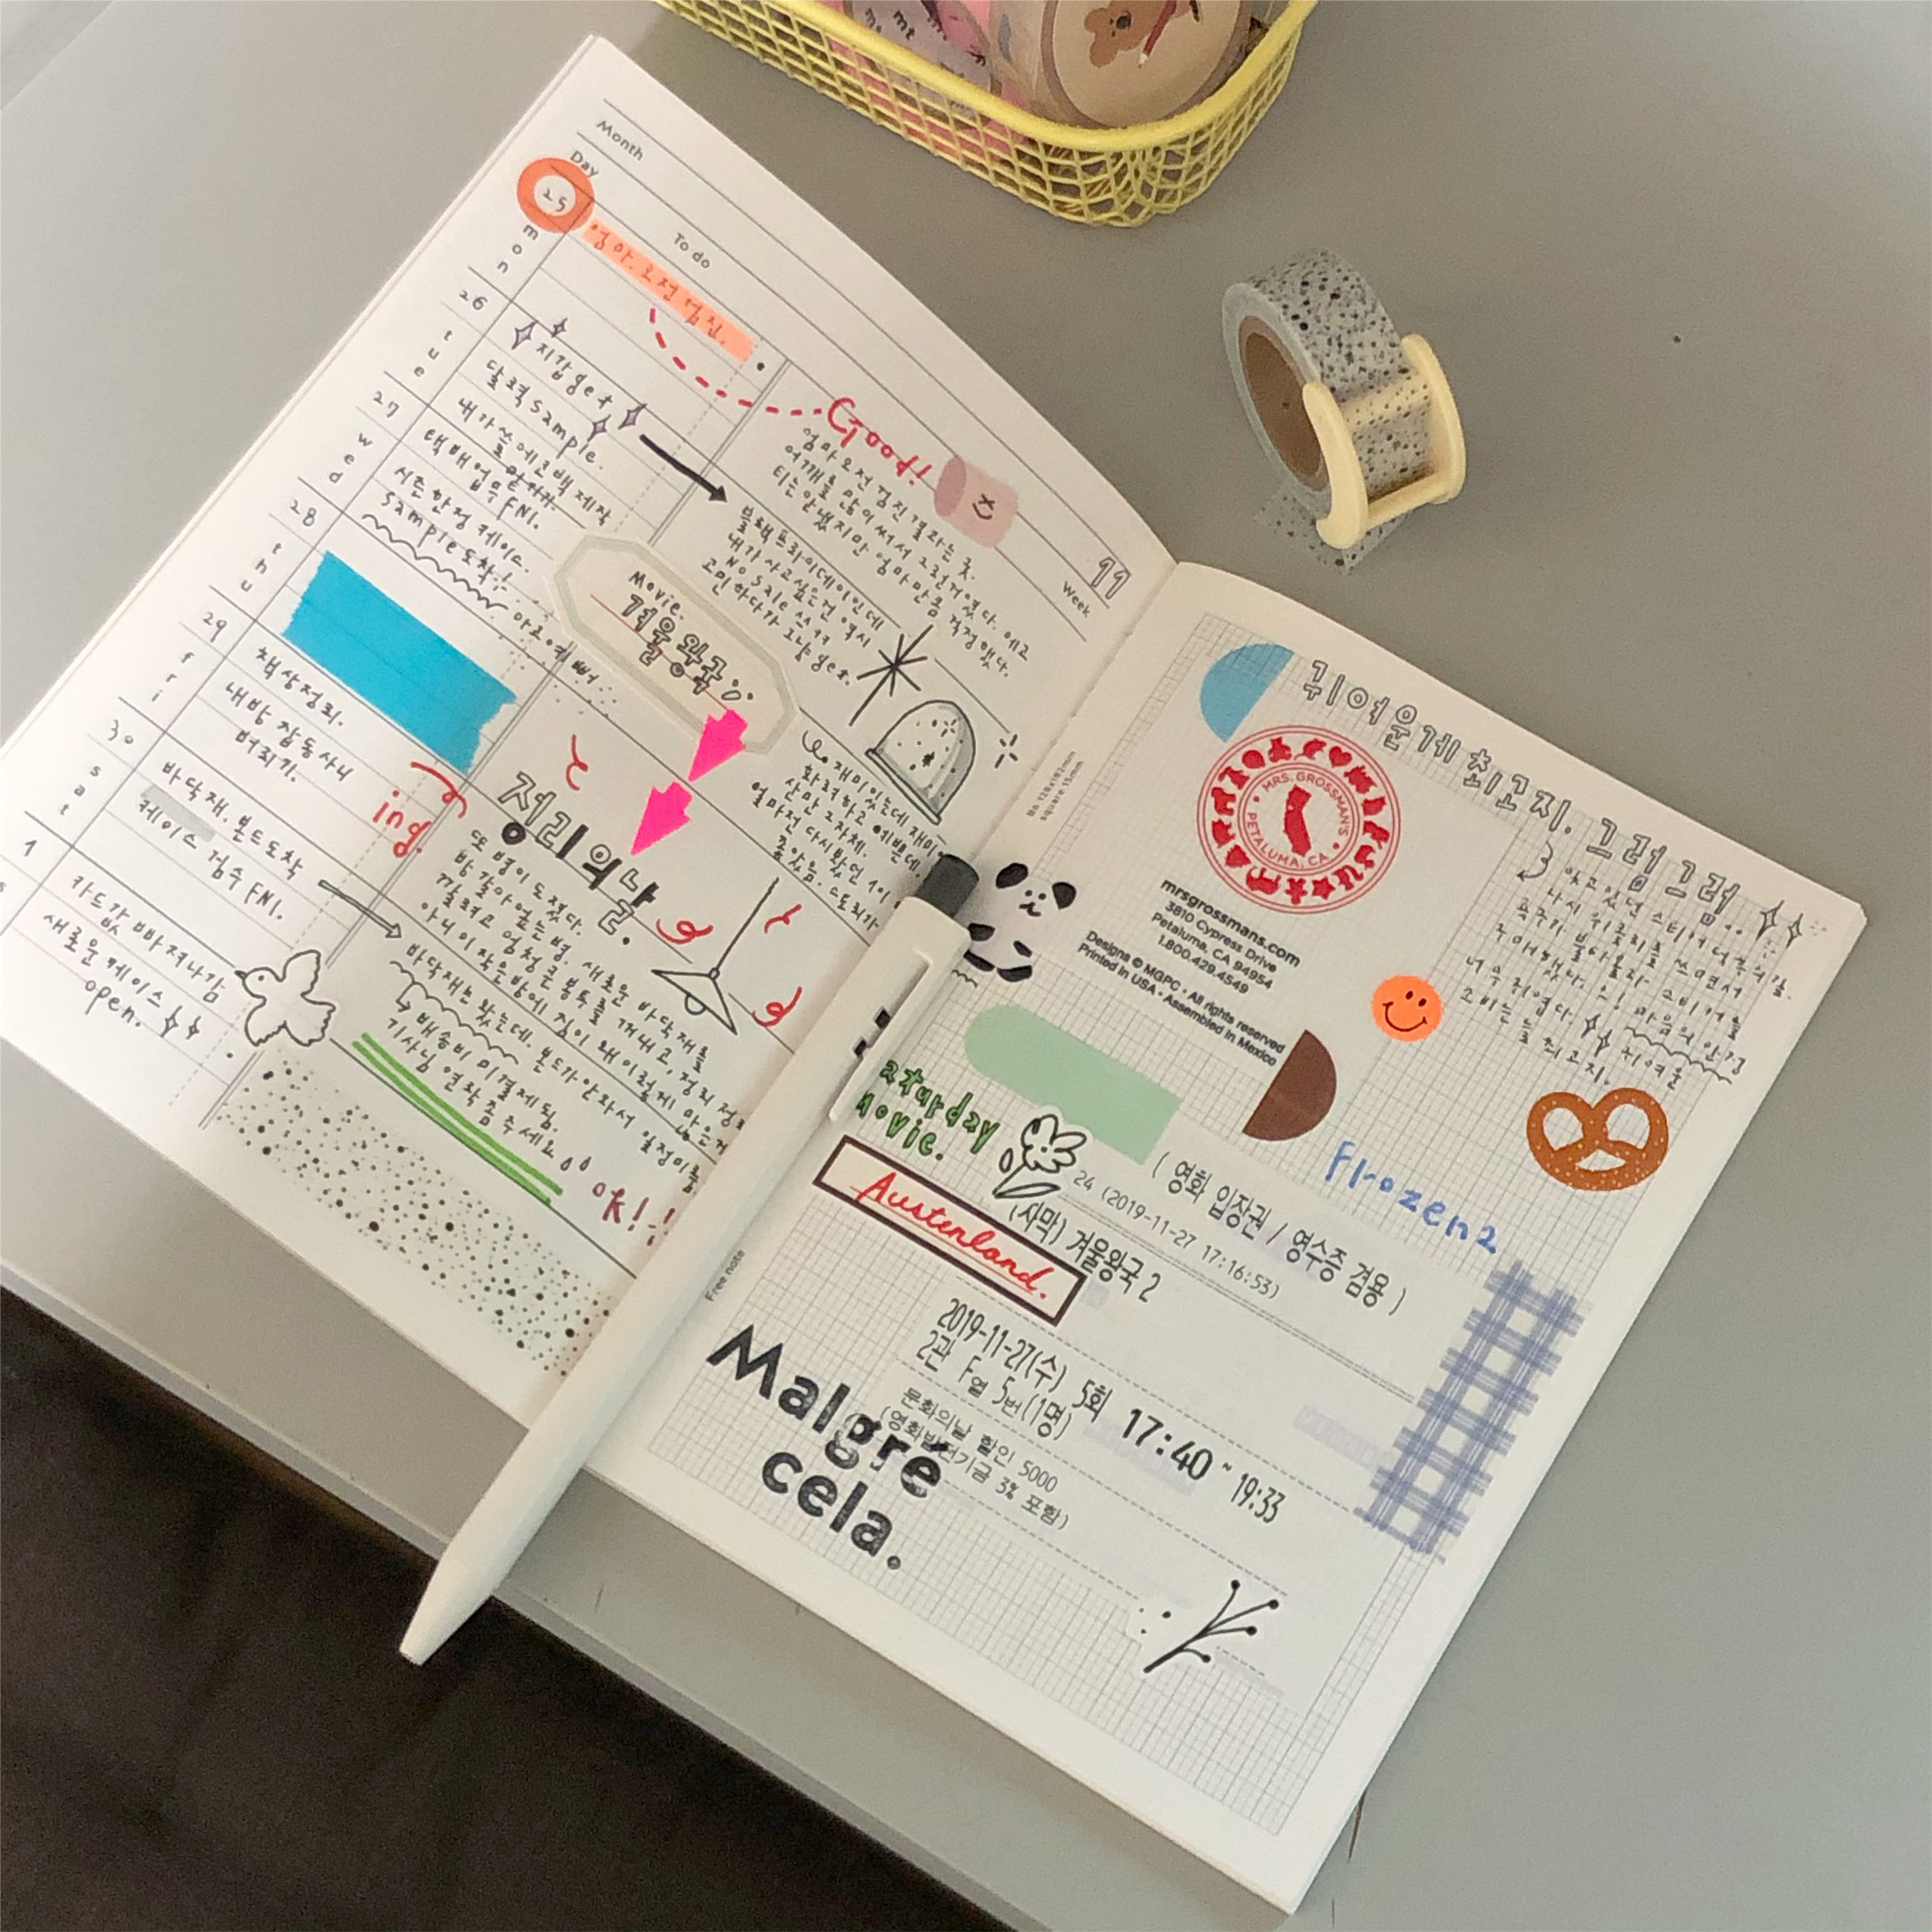 Month
Day
To do
Week
11
25
mon
엄마. 오전 검진.
26
tue
지갑 get
달력 sample.
27
wed
내가 쓸 에코백 제작
택배 업무 FNI.
28
thu
시즌 한정 케이스.
sample 도착!
아고 예뻐
29
fri
책상정리.
내방 잡동사니
버리기.
30
sat
바닥재. 본드 도착
케이스 검수 FNI.
1
s
카드값 빠져나감
새로운 케이스
open.
Good!
엄마 오전 검진 결과는 굿.
어깨를 많이 써서 그런거였다. 에고
티는 안냈지만 엄마만큼 걱정했다.
블랙프라이데이인데
내가 사고싶은건 역시
No Sale
고민하다가 그냥 get.
Movie.
겨울왕국
재미있는데 재미
화려하고 예쁜데.
산만 그자체.
얼마전 다시봤던 1이
좋았음. 스토리가
ind.
정리의 날.
또 병이 도졌다.
방 갈아엎는 병. 새로운 바닥재를
깔려고 엄청 큰 봉투를 꺼내고, 정리 정
아니 이 작은방에 짐이 왜이렇게 많은거
바닥재는 왔는데. 본드가 안와서 일정미룸.
배송비 미결제 됨.
기사님 연락 좀 주세요
ok!
Free note
B6 128x182mm
square 1.5mm
귀여운게 최고지. 그럼 그럼..
MRS. GROSSMAN'S
PETALUMA, CA
mrsgrossmans.com
3810 Cypress Drive
Petaluma, CA 94954
1.800.429.4549
Designs © MGPC • All rights reserved
Printed in USA • Assembled in Mexico
아고 있던 스티커 대부의 길.
다시 위글위글 쓰면서
욕구가 불타올라
구매했다. 마음의 안정
너무 귀엽다. 귀여운
소비는 늘 최고지.
aturday
movie.
Frozen2
( 영화 입장권 / 영수증 겸용 )
24 (2019-11-27 17:16:53)
Austenland.
(자막) 겨울왕국 2
2019-11-27(수) 5회 17:40 ~ 19:33
2관 F열 5번(1명)
문화의날 할인 5000
(영화발전기금 3% 포함)
Malgré
cela.
mt
mt